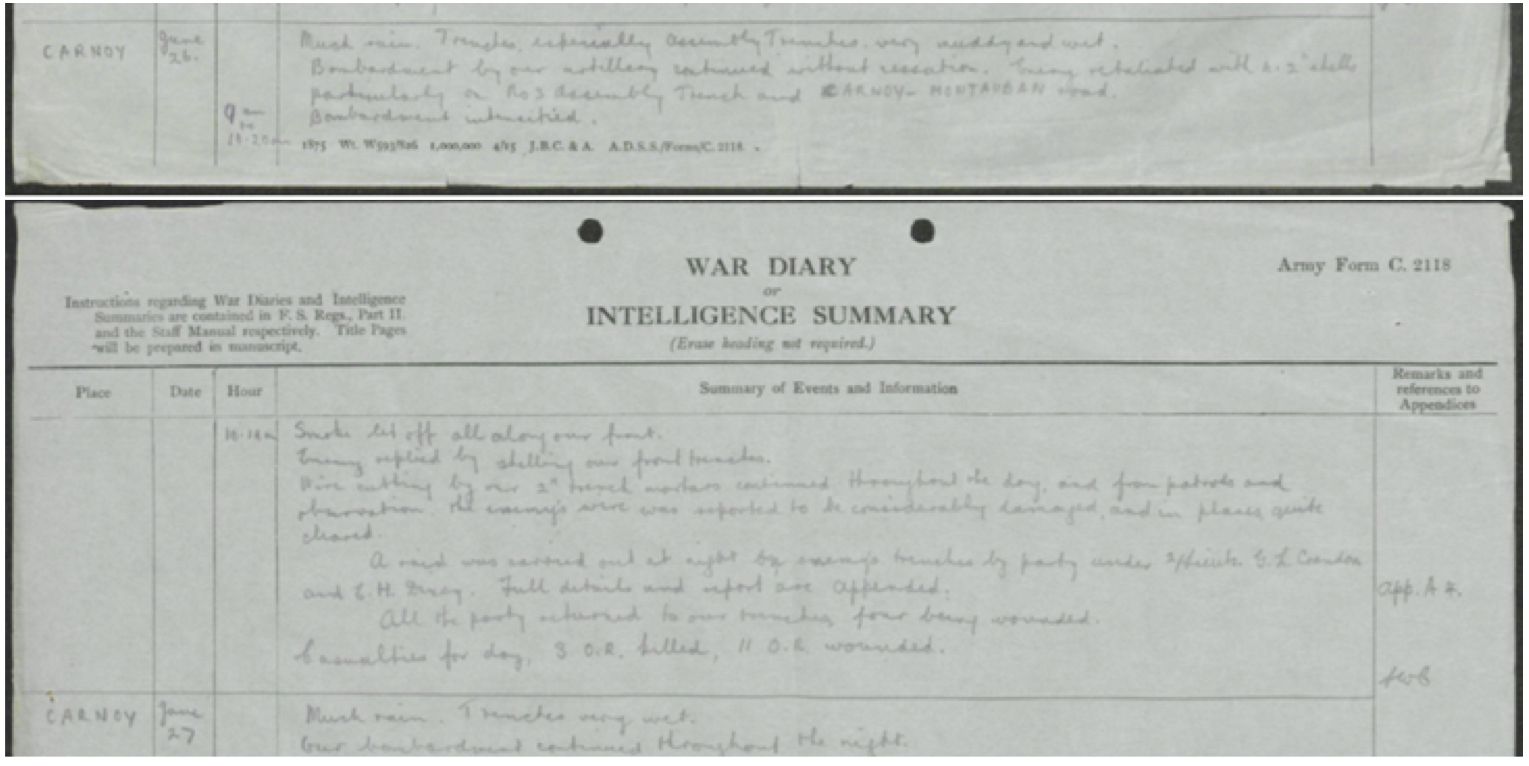 CARNOY June 26. Much rain. Trenches, especially Assembly Trenches, very muddy and wet.
Bombardment by our artillery continued without cessation. Enemy retaliated with 4.2" shells
particularly on No 3 Assembly Trench and CARNOY - MONTAUBAN road.
9 am to Bombardment intensified.
10.20am 1875 Wt. W593/826 1,000,000 4/15 J.B.C. & A. A.D.S.S./Forms/C. 2118.
WAR DIARY
Army Form C. 2118
or
INTELLIGENCE SUMMARY
(Erase heading not required.)
Instructions regarding War Diaries and Intelligence
Summaries are contained in F. S. Regs., Part II.
and the Staff Manual respectively. Title Pages
will be prepared in manuscript.
Place Date Hour Summary of Events and Information Remarks and
references to
Appendices
Smoke let off all along our front.
Enemy replied by shelling our front trenches.
Wire cutting by our 2" trench mortars continued throughout the day, and from patrols and
observation the enemy's wire was reported to be considerably damaged, and in places quite
cleared.
A raid was carried out at night by enemy's trenches by party under 2/Lieuts. G. L.
and E. H. Full details and report are appended. App. A 4.
All the party returned to our trenches, four being wounded.
Casualties for day, 3 O.R. killed, 11 O.R. wounded.
CARNOY June 27 Much rain. Trenches very wet.
Our bombardment continued throughout the night.